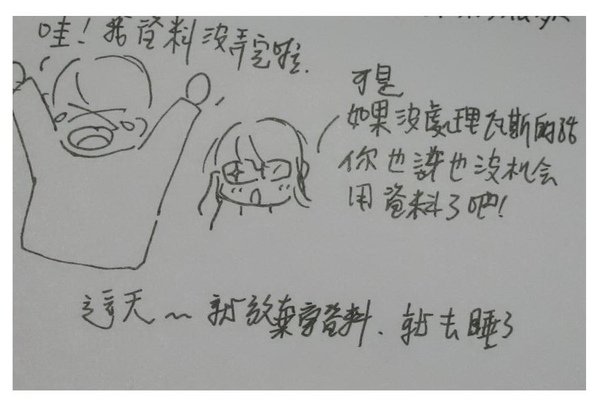 哇！我資料沒弄完啦.
可是
如果沒處理瓦斯的話
你也許也沒机会
用資料了吧！
這天～ 就放棄寫資料、就去睡了